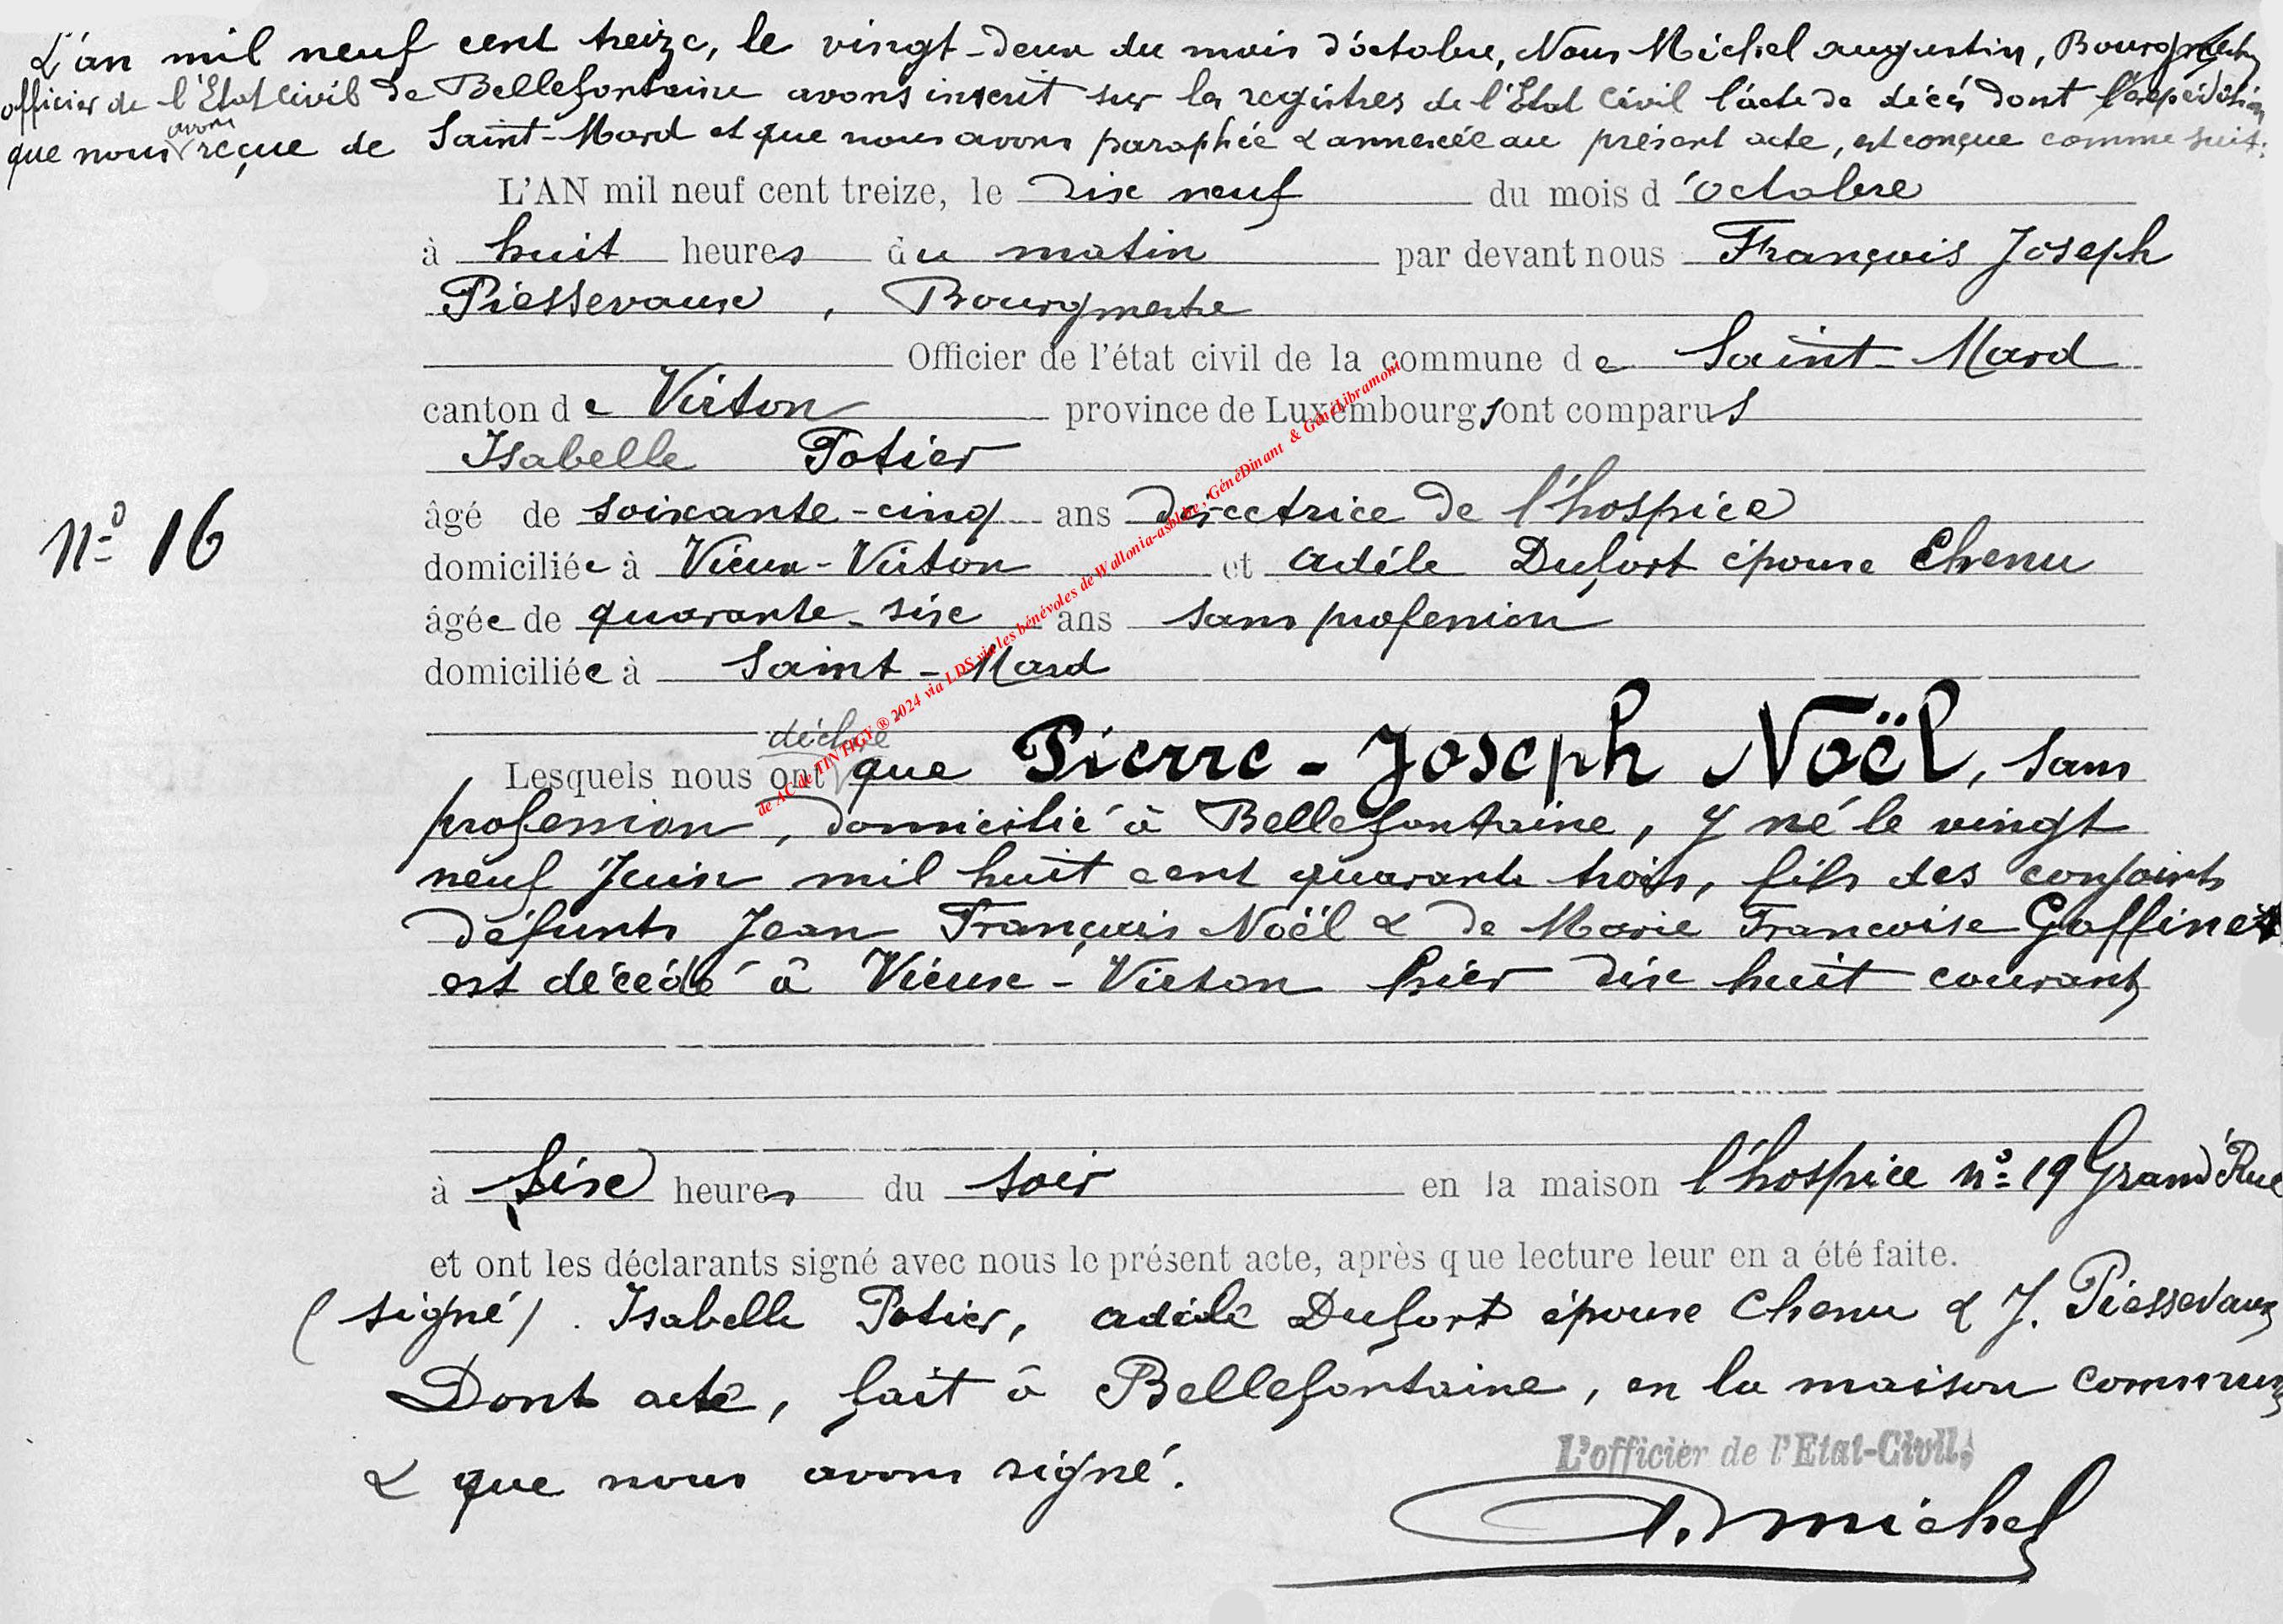 L'an mil neuf cent treize, le vingt-deux du mois d'octobre, Nous Michel Augustin, Bourgmestre
officier de l'Etat Civil de Bellefontaine avons inscrit sur les registres de l'Etat Civil l'acte de décès dont l'expédition
que nous avons reçue de Saint-Mard et que nous avons paraphée & annexée au présent acte, est conçue comme suit:
L'AN mil neuf cent treize, le dix neuf du mois d'octobre
à huit heures du matin par devant nous François Joseph
Piessevaux, Bourgmestre
Officier de l'état civil de la commune de Saint-Mard
canton de Virton province de Luxembourg sont comparus
Isabelle Potier
N° 16
âgé de soixante-cinq ans directrice de l'hospice
domiciliée à Vieux-Virton et Adèle Dufort épouse Chenu
âgée de quarante-six ans sans profession
domiciliée à Saint-Mard
Lesquels nous ont déclaré que Pierre-Joseph Noël, sans
profession, domicilié à Bellefontaine, y né le vingt
neuf Juin mil huit cent quarante trois, fils des conjoints
défunts Jean François Noël & de Marie Francoise Gaffinet
est décédé à Vieux-Virton hier dix huit courant
à six heures du soir en la maison l'hospice N° 19 Grand'Rue
et ont les déclarants signé avec nous le présent acte, après que lecture leur en a été faite.
(signé). Isabelle Potier, Adèle Dufort épouse Chenu & J. Piessevaux
Dont acte, fait à Bellefontaine, en la maison commune
& que nous avons signé.
L'officier de l'Etat-Civil,
A. Michel
de AC de TINTIGY ® 2024 via LDS via les bénévoles de Wallonia-asbl.be : GénéDinant & GénéLibramont